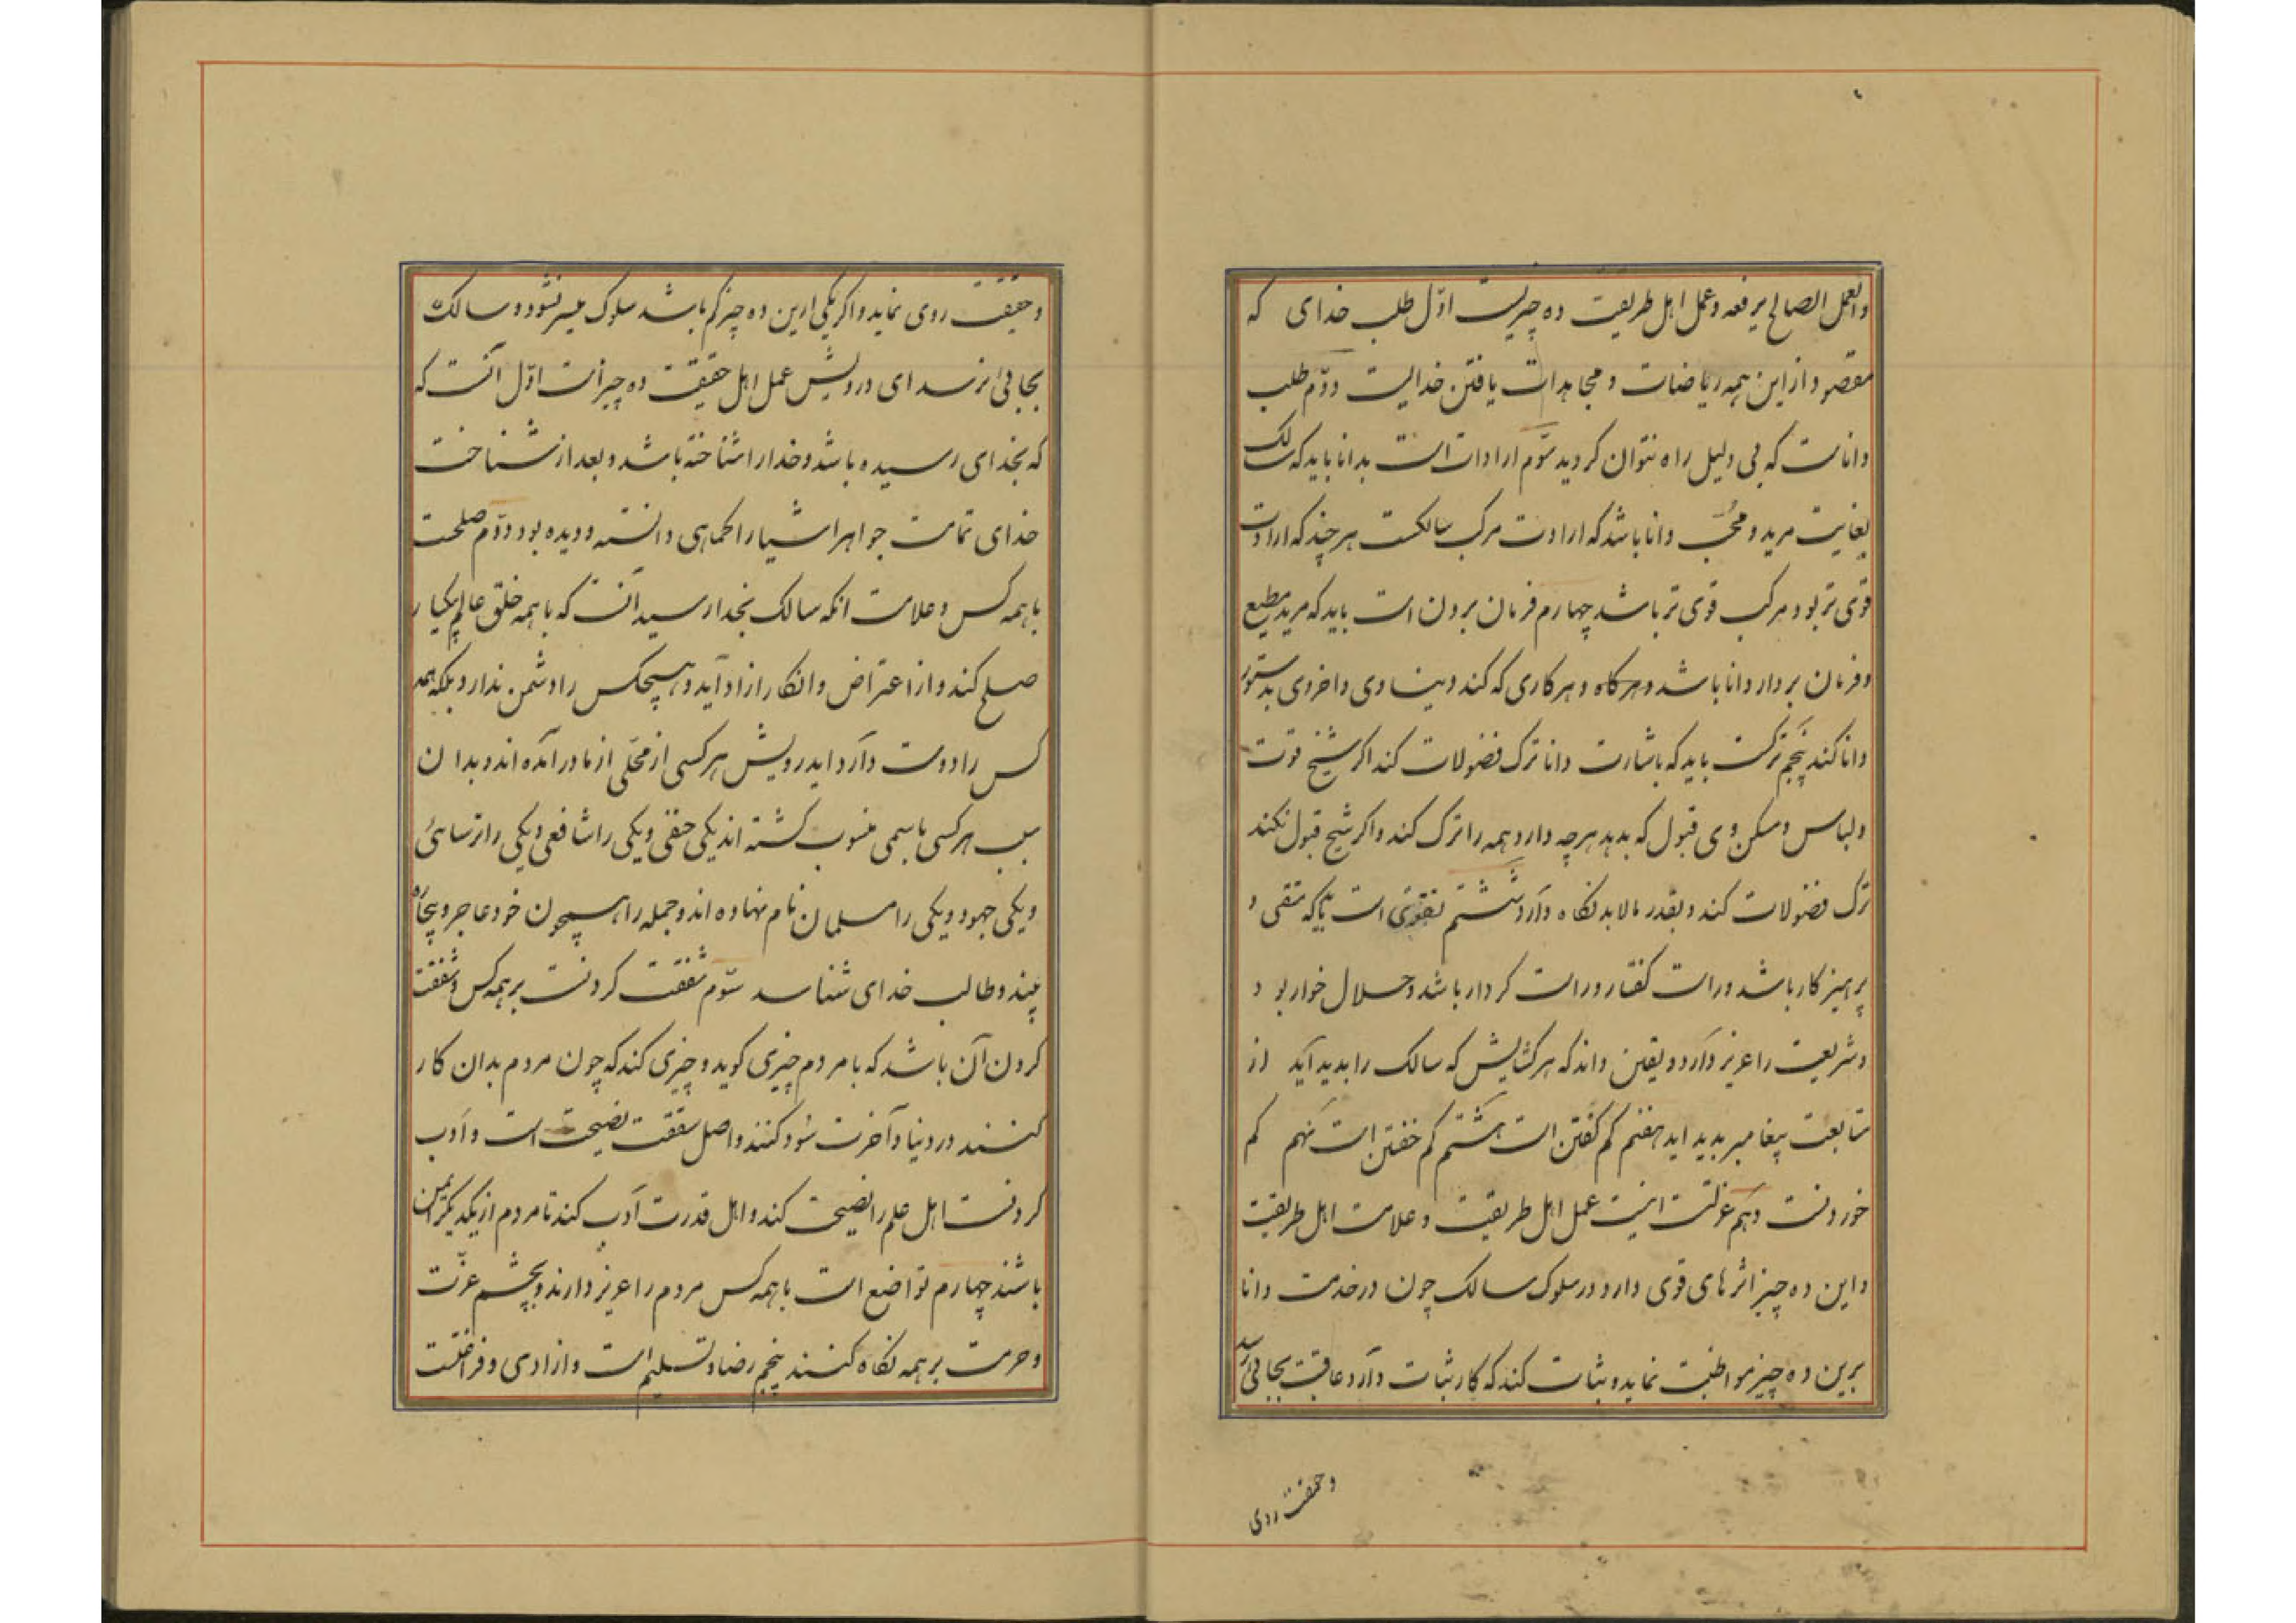 والعمل الصالح یرفعه وعمل اهل طریقت ده چیزیست اوّل طلب خدای که
مقصود از این همه ریاضات و مجاهدات یافتن خدایست دوّم طلب
داناست که بی دلیل راه نتوان کردید سّوم ارادات است بدانا باید که سالک
بغایت مرید و محّب دانا باشد که ارادت مرکب سالکست هر چند که ارادت
قوی تر بود مرکب قوی تر باشد چهارم فرمان بردن است باید که مرید مطیع
و فرمان بردار دانا باشد و هر کاه و هر کاری که کند دیناوی و اخروی بدستور
دانا کند پنجم ترکست باید که باشارت دانا ترک فضولات کند اکر شیخ قوت
و لباس و مسکن وی قبول که بدید هر چه دارد همه را ترک کند و اکر شیخ قبول نکند
ترک فضولات کند و بقدر مالابد نکاه دارد ششتم تقوی است باید که متقی و
پرهیز کار باشد و راست کفتار و راست کردار باشد و حلال خوار بو د
و شریعت را عزیز دارد و یقین داند که هر کشایش که سالک را بدید آید از
متابعت پیغامبر بدید اید هفتم کم کفتن است هشتم کم خفتن است نهم کم
خوردنست دهم عزلتست اینست عمل اهل طریقیت و علامت اهل طریقیت
و این ده چیز اثرهای قوی دارد در سلوک سالک چون در خدمت دانا
برین ده چیز مواظبت نماید و ثبات کند که کار ثبات دارد عاقبت بجائی رسد
و حقیقت روی
و حقیقت روی نماید و اکر یکی ازین ده چیز کم باشد سلوک میسر نشود و سالک
بجائی نرسد ای درویش عمل اهل حقیقت ده چیز است اوّل آنست که
که بخدای رسیده باشد و خدا را شناخته باشد و بعد از شناخت
خدای تمامت جواهر اشیا را کماهی دانسته و دیده بود دوّم صلحست
با همه کس و علامت انکه سالک بخدا رسید آنست که با همه خلق عالم بیکبار
صلح کند و از اعتراض و انکار ازاد آید و هیچکس را دشمن ندارد بلکه همه
کس را دوست دارد ایدرویش هر کسی از محلّی از مادر آمده اند و بدان
سبب هر کسی باسمی منسوب کشته اند یکی حنفی و یکی را شافعی و یکی را ترسائی
و یکی جهود و یکی را مسلمان نام نهاده اند و جمله را همچون خود عاجز و بیچاره
بیند و طالب خدای شناسد سّوم شفقت کردنست بر همه کس و شفقت
کردن آن باشد که با مردم چیزی کوید و چیزی کند که چون مردم بدان کار
کنند در دنیا و آخرت سود کنند و اصل شفقت نصیحت است و ادب
کردنست اهل علم را نصیحت کند و اهل قدرت ادب کند تا مردم از یکدیکر ایمن
باشند چهارم تواضع است با همه کس مردم را عزیز دارند و بچشم عزّت
و حرمت بر همه نکاه کنند پنجم رضا و تسلیم است و ازادی و فراغتست